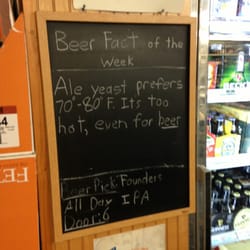 Beer Fact of the
Week
Ale yeast prefers
70°-80° F. Its too
hot, even for beer
Beer Pick: Founders
All Day IPA